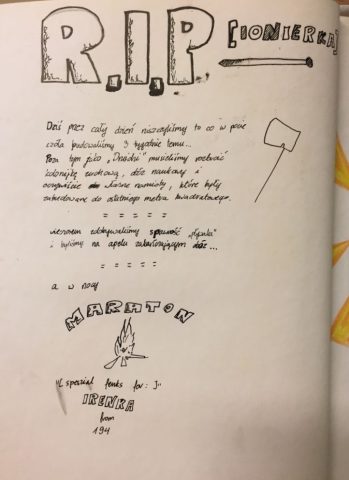 R.I.P [IONIERKA]
Dziś przez cały dzień niszczyliśmy to co w pocie
czoła budowaliśmy 3 tygodnie temu...
Poza tym jako "Dziadki" musieliśmy rozebrać
kolonijkę zuchową, obóz naukowy i
oczywiście własne namioty, które były
zabudowane do ostatniego metra kwadratowego.
= = = = =
wieczorem zdobywaliśmy sprawność
i byliśmy na apelu zakańczającym obóz...
= = = = =
a w nocy
MARATON
"[speszial tenks for: ]"
IRENKA
from
194